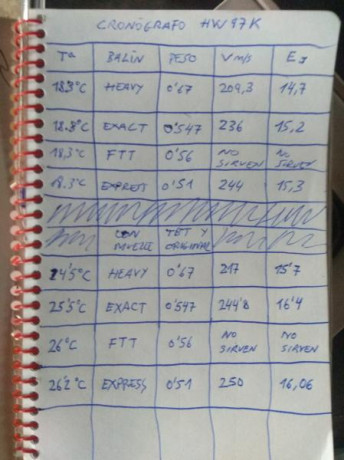 CRONÓGRAFO HW97K
Tª BALÍN PESO Vm/s EJ
18.3°C HEAVY 0'67 209,3 14,7
18.8°C EXACT 0'547 236 15,2
18,3°C FTT 0'56 NO SIRVEN NO SIRVEN
18.3°C EXPRESS 0'51 244 15,3
CON MUELLE TET Y ORIGINAL
24'5°C HEAVY 0'67 217 15'7
25'5°C EXACT 0'547 244'8 16'4
26°C FTT 0'56 NO SIRVEN NO SIRVEN
26'2°C EXPRESS 0'51 250 16,06